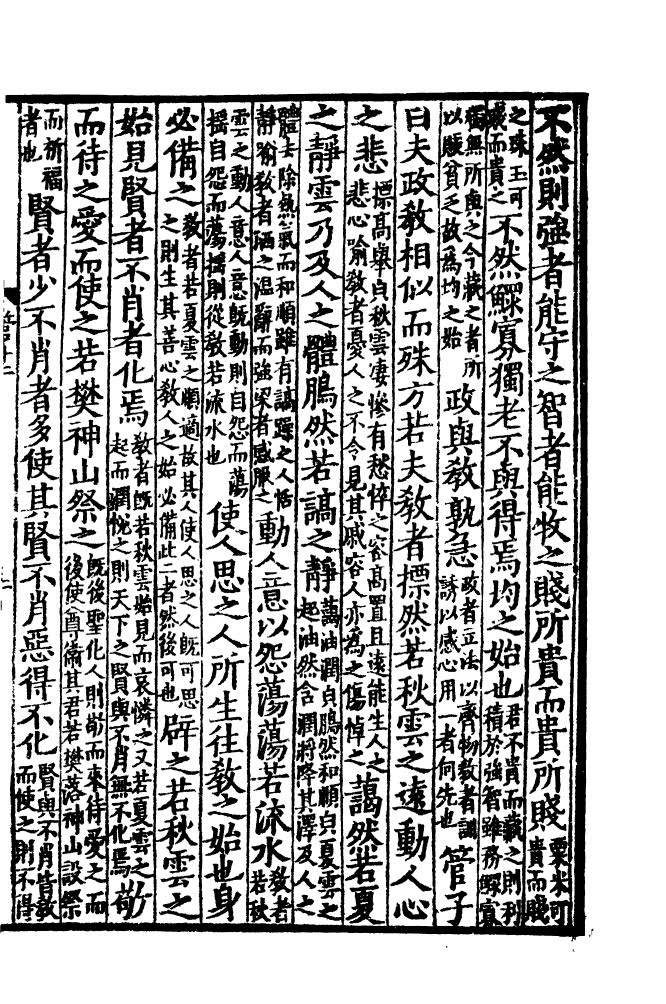 不然則強者能守之智者能牧之賤所貴而貴所賤粟米可貴而賤
之珠玉可賤而貴之不然鰥寡獨老不與得焉均之始也君不貴而藏之則利積於強智雖務鰥寡
獨無所與之今藏之者所以賑貧乏故為均之始政與教孰急政者立法以齊物教者訓誘以感心用一者何先也管子
曰夫政教相似而殊方若夫教者摽然若秋雲之遠動人心
之悲摽高舉皃秋雲凄慘有愁悴之容高置且遠能生人之悲心喻教者憂人之不令見其戚容人亦為之傷悼之藹然若夏
之靜雲乃及人之體藹油潤皃鵩然和順皃夏雲之起油然含潤將降其澤及人之鵩然若謞之靜
體去除熱氣而和順雖有謞躁之人恬靜喻教者洒之溫辭而強梁者感服之動人意以怨蕩蕩若流水教者若秋
雲之動人意人意既動則自怨而蕩搖自怨而蕩搖則從教若流水也使人思之人所生往教之始也身
必備之教者若夏雲之順適故其人使人思之人既可思之則生其善心教人之始必備此二者然後可也辟之若秋雲之
始見賢者不肖者化焉教者既若秋雲始見而哀憐之又若夏雲之起而潤悅之則天下之賢與不肖無不化焉敬
而待之愛而使之若樊神山祭之既後聖化人則敬而來待愛之而後使尊衛其君若樊落神山設祭
而祈福者也賢者少不肖者多使其賢不肖惡得不化賢與不肖皆敎而使之則不得